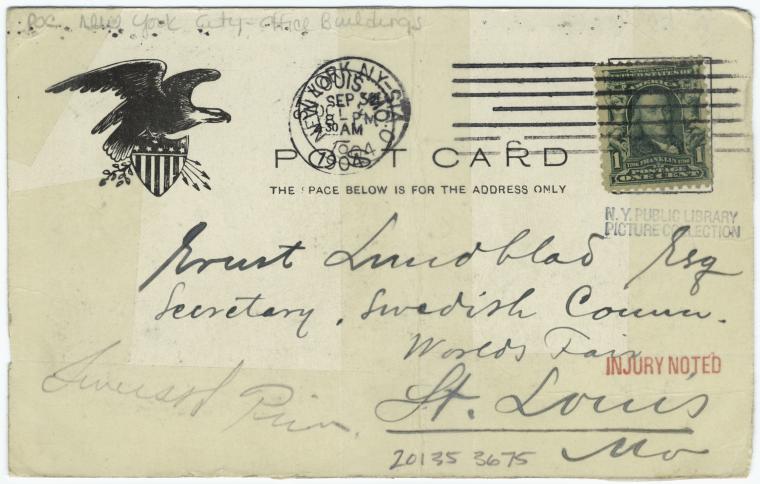 POC New York City - Office Buildings
NEW YORK, N.Y. STA.
LOUIS
SEP 30
8 PM
4 30 AM
1904
1904
POST CARD
THE SPACE BELOW IS FOR THE ADDRESS ONLY
UNITED STATES OF
AMERICA
1 1
1706 FRANKLIN 1790
POSTAGE
ONE CENT
N.Y. PUBLIC LIBRARY
PICTURE COLLECTION
Ernst Lundblad Esq
Secretary, Swedish Comm.
Worlds Fair
INJURY NOTED
St. Louis
Mo
20135 3675